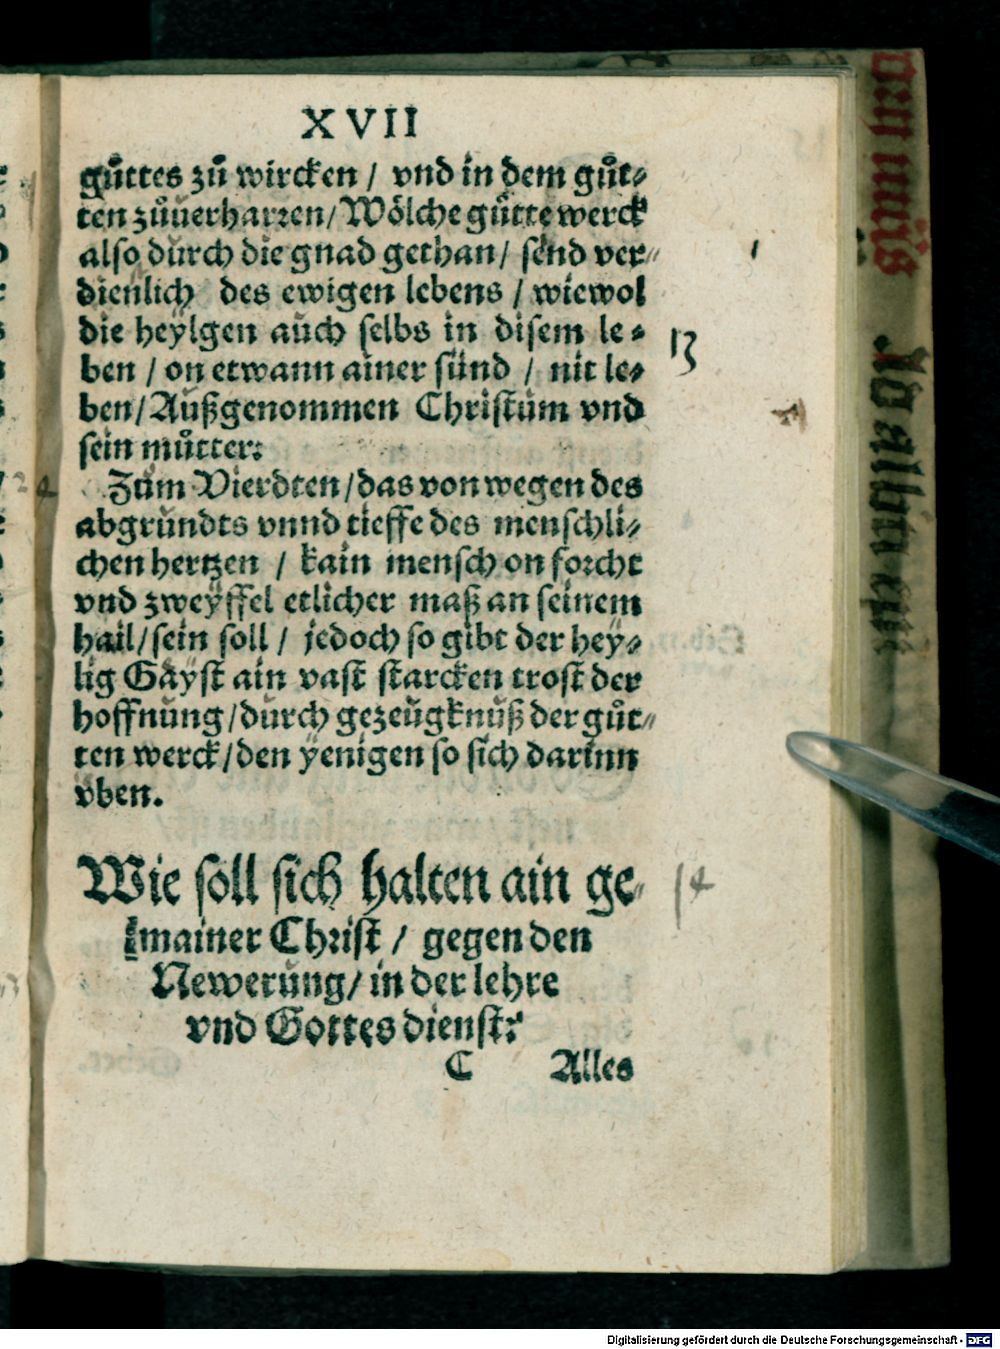 XVII
gůttes zů wircken / vnd in dem gůt⸗
ten zůuerharren/Wölche gůtte werck
also durch die gnad gethan/ send ver⸗
dienlich des ewigen lebens / wiewol
die heylgen auch selbs in disem le⸗
ben / on etwann ainer sünd / nit le⸗
ben/Außgenommen Christum vnd
sein můtter:
13
Zum Vierdten/das von wegen des
abgrundts vnnd tieffe des menschli⸗
chen hertzen / kain mensch on forcht
vnd zweyffel etlicher maß an seinem
hail/sein soll / jedoch so gibt der hey⸗
lig Gayst ain vast starcken trost der
hoffnung/durch gezeügknuß der gůt⸗
ten werck/den yenigen so sich darinn
vben.
Wie soll sich halten ain ge⸗
14
mainer Christ / gegen den
Newerung/ in der lehre
vnd Gottes dienst:
C Alles
Digitalisierung gefördert durch die Deutsche Forschungsgemeinschaft - DFG